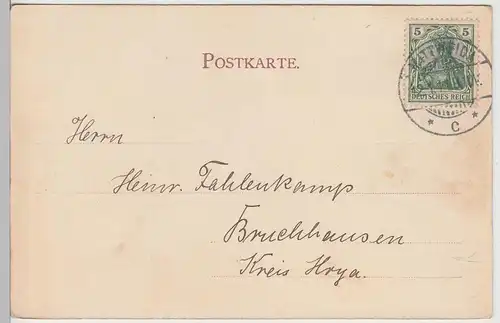 5 5
DEUTSCHES REICH
POSTKARTE.
* c *
Herrn
Heinr. Fahlenkamp
Bruchhausen
Kreis Hoya.